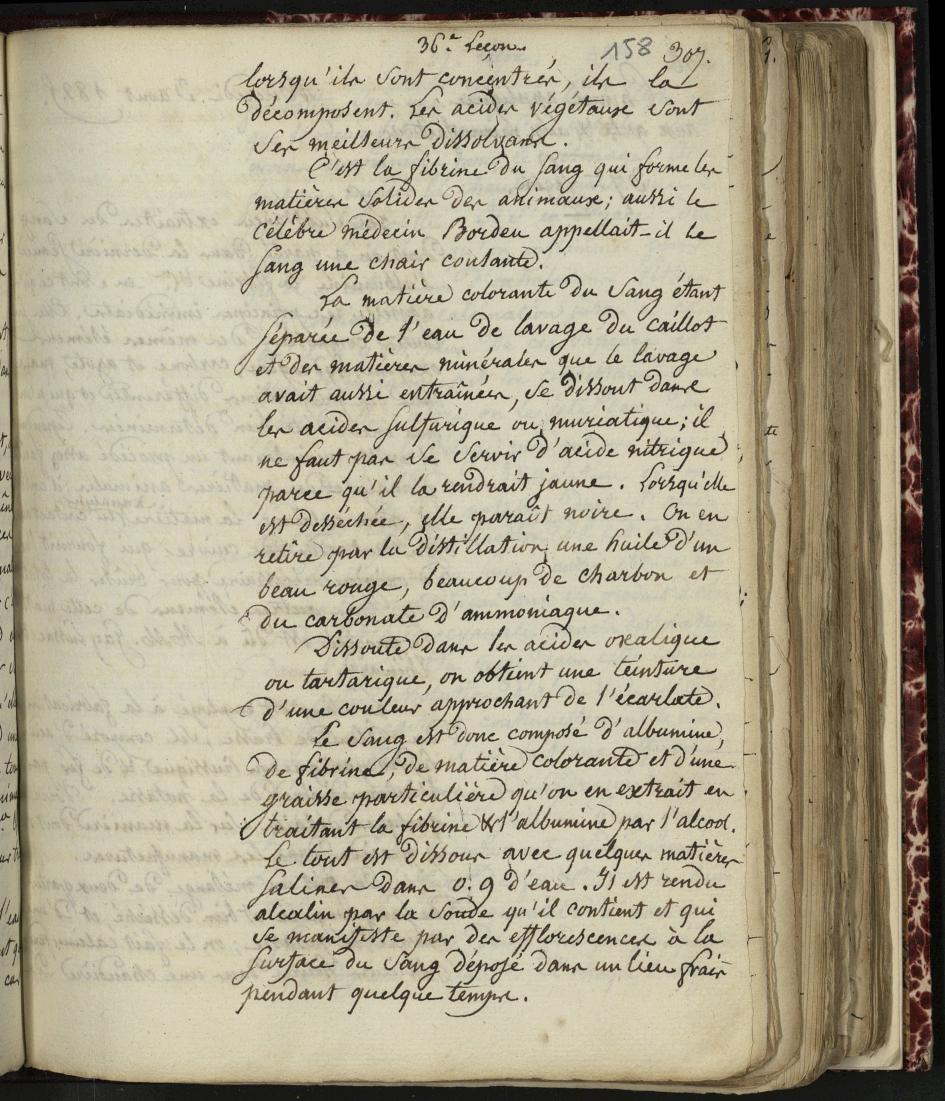 36.e Leçon. 158 307.
lorsqu'ils sont concentrés, ils la
décomposent. Les acides végétaux sont
ses meilleurs dissolvans.
C'est la fibrine du sang qui forme les
matières solides des animaux; aussi le
célèbre médecin Bordeu appellait-il le
sang une chair coulante.
La matière colorante du sang étant
séparée de l'eau de lavage du caillot
et des matières minérales que le lavage
avait aussi entraînées, se dissout dans
les acides sulfurique ou muriatique; il
ne faut pas se servir d'acide nitrique
parce qu'il la rendrait jaune. Lorsqu'elle
est desséchée, elle paraît noire. On en
retire par la distillation une huile d'un
beau rouge, beaucoup de charbon et
du carbonate d'ammoniaque.
Dissoute dans les acides oxalique
ou tartarique, on obtient une teinture
d'une couleur approchant de l'écarlate.
Le sang est donc composé d'albumine,
de fibrine, de matière colorante et d'une
graisse particulière qu'on en extrait en
traitant la fibrine & l'albumine par l'alcool.
Le tout est dissous avec quelques matières
salines dans 0.9 d'eau. Il est rendu
alcalin par la soude qu'il contient et qui
se manifeste par des efflorescences à la
surface du sang déposé dans un lieu frais
pendant quelque temps.